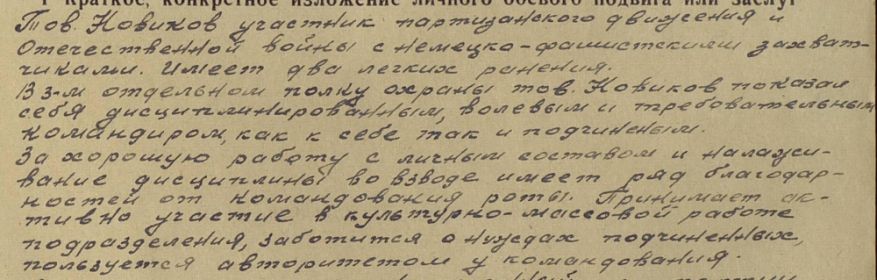 1 Краткое, конкретное изложение личного боевого подвига или заслуг
Тов. Новиков участник партизанского движения и
Отечественной войны с немецко-фашистскими захват-
чиками. Имеет два легких ранения.
В 3-м отдельном полку охраны тов. Новиков показал
себя дисциплинированным, волевым и требовательным
командиром, как к себе так и подчиненым.
За хорошую работу с личным составом и налажи-
вание дисциплины во взводе имеет ряд благодар-
ностей от командования роты. Принимает ак-
тивно участие в культурно-массовой работе
подразделения, заботится о нуждах подчиненных,
пользуется авторитетом у командования.